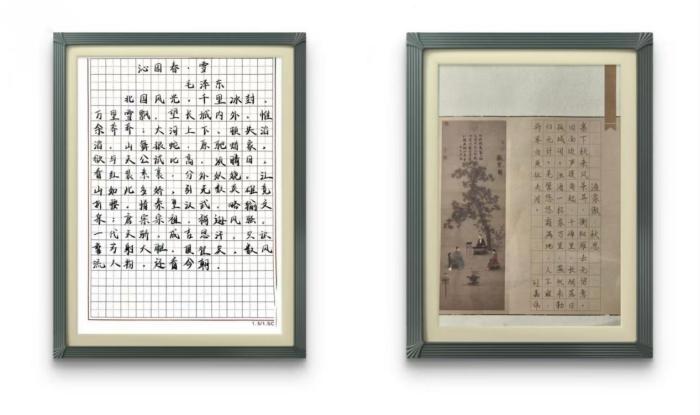 沁园春·雪
毛泽东
北国风光，千里冰封，
万里雪飘。望长城内外，惟
余莽莽；大河上下，顿失滔
滔。山舞银蛇，原驰蜡象，
欲与天公试比高。须晴日，
看红装素裹，分外妖娆。
山如此多娇，引无数英雄竞
折腰。惜秦皇汉武，略输文
采；唐宗宋祖，稍逊风骚。
一代天骄，成吉思汗，只识
弯弓射大雕。俱往矣，数风
流人物，还看今朝。
渔家傲·秋思
塞下秋来风景异，衡阳雁去无留意。
四面边声连角起，千嶂里，长烟落日
孤城闭。浊酒一杯家万里，燕然未勒
归无计。羌管悠悠霜满地，人不寐，
将军白发征夫泪。
听琴图